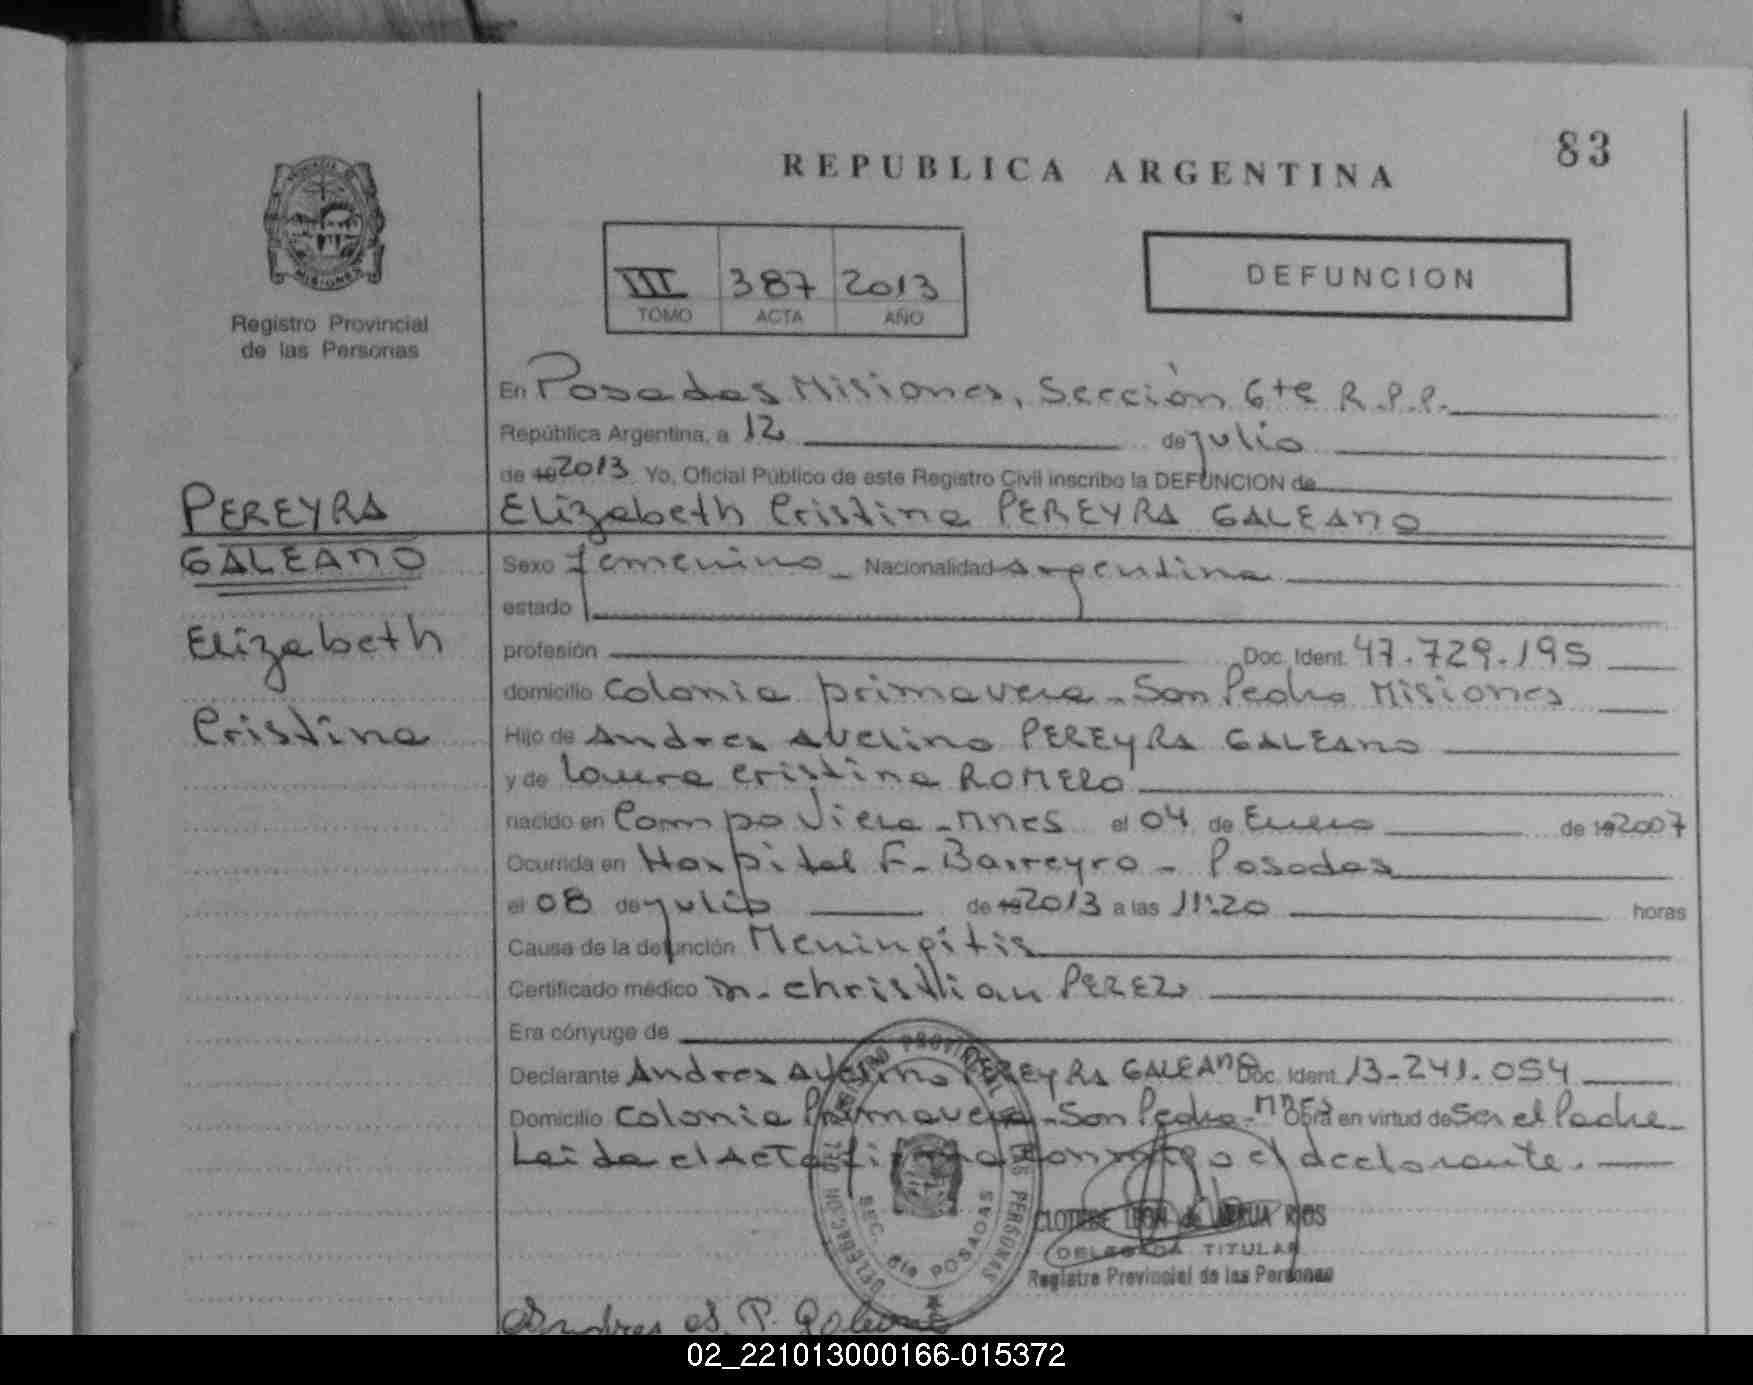 83
REPUBLICA ARGENTINA
III 387 2013
TOMO ACTA AÑO
DEFUNCION
MISIONES
Registro Provincial
de las Personas
PEREYRA
GALEANO
Elizabeth
Cristina
En Posadas Misiones, Sección 6ta R.P.P.
República Argentina, a 12 de julio
de 19 2013 Yo, Oficial Público de este Registro Civil inscribo la DEFUNCION de
Elizabeth Cristina PEREYRA GALEANO
Sexo femenino Nacionalidad Argentina
estado
profesión Doc. Ident. 47.729.195
domicilio Colonia primavera - San Pedro Misiones
Hijo de Andres Avelino PEREYRA GALEANO
y de Laura Cristina ROMERO
nacido en Campo Viera - Mnes el 04 de Enero de 19 2007
Ocurrida en Hospital F. Barreyro - Posadas
el 08 de julio de 19 2013 a las 11:20 horas
Causa de la defunción Meningitis
Certificado médico Dr. Christian PEREZ
Era cónyuge de
Declarante Andres Avelino PEREYRA GALEANO Doc. Ident. 13.241.054
Domicilio Colonia Primavera - San Pedro - Mnes Obra en virtud de Ser el Padre
Leida el Acta firma conmigo el declarante.
REGISTRO PROVINCIAL DE LAS PERSONAS
DELEGACION
SEC. 6ta POSADAS
CLOTILDE LEON de RIOS
DELEGADA TITULAR
Registro Provincial de las Personas
Andres A. P. Galeano
02_221013000166-015372